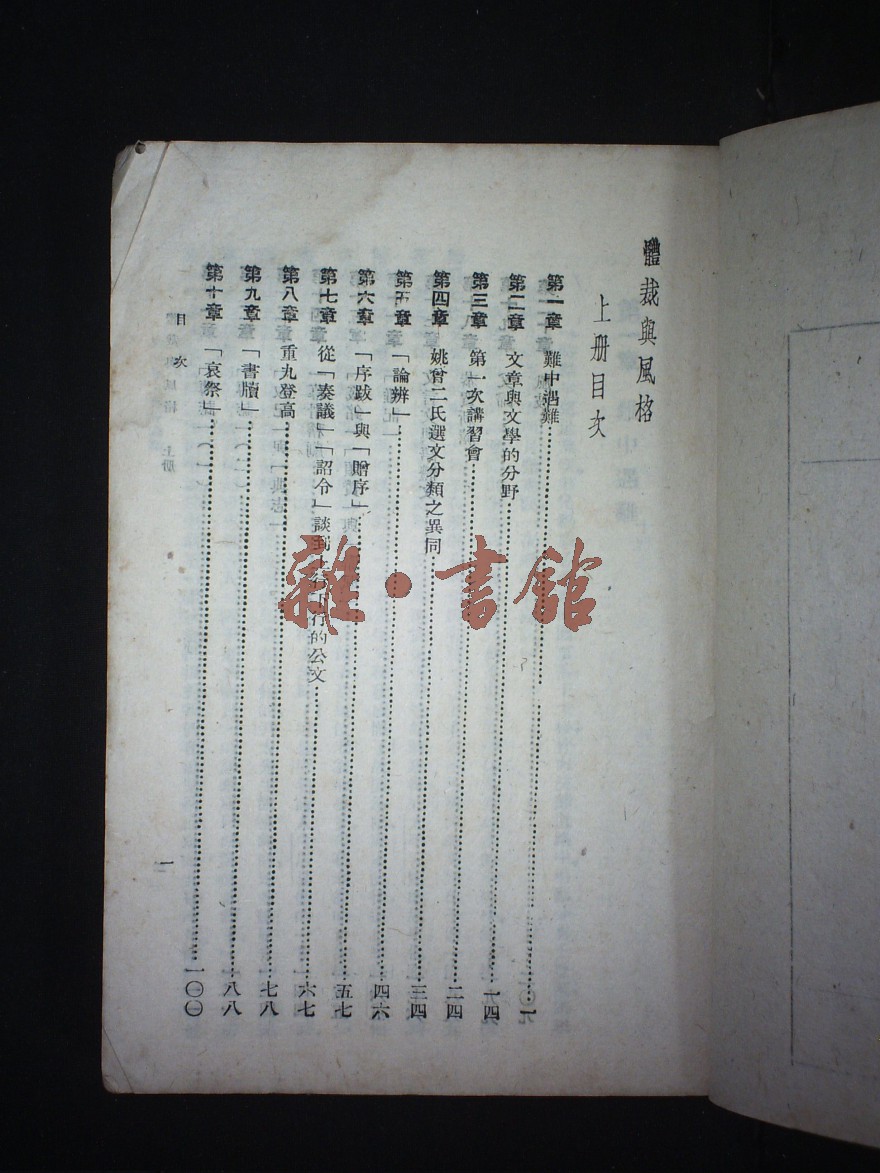 體裁與風格
上册目次
第一章 難中遇難……一
第二章 文章與文學的分野……一四
第三章 第一次講習會……二四
第四章 姚曾二氏選文分類之異同……三四
第五章 「論辨」……四六
第六章 「序跋」與「贈序」……五七
第七章 從「奏議」「詔令」談到上行下行的公文……六七
第八章 重九登高……七八
第九章 「書牘」……八八
第十章 「哀祭」……一〇〇
目次
一
雜·書館